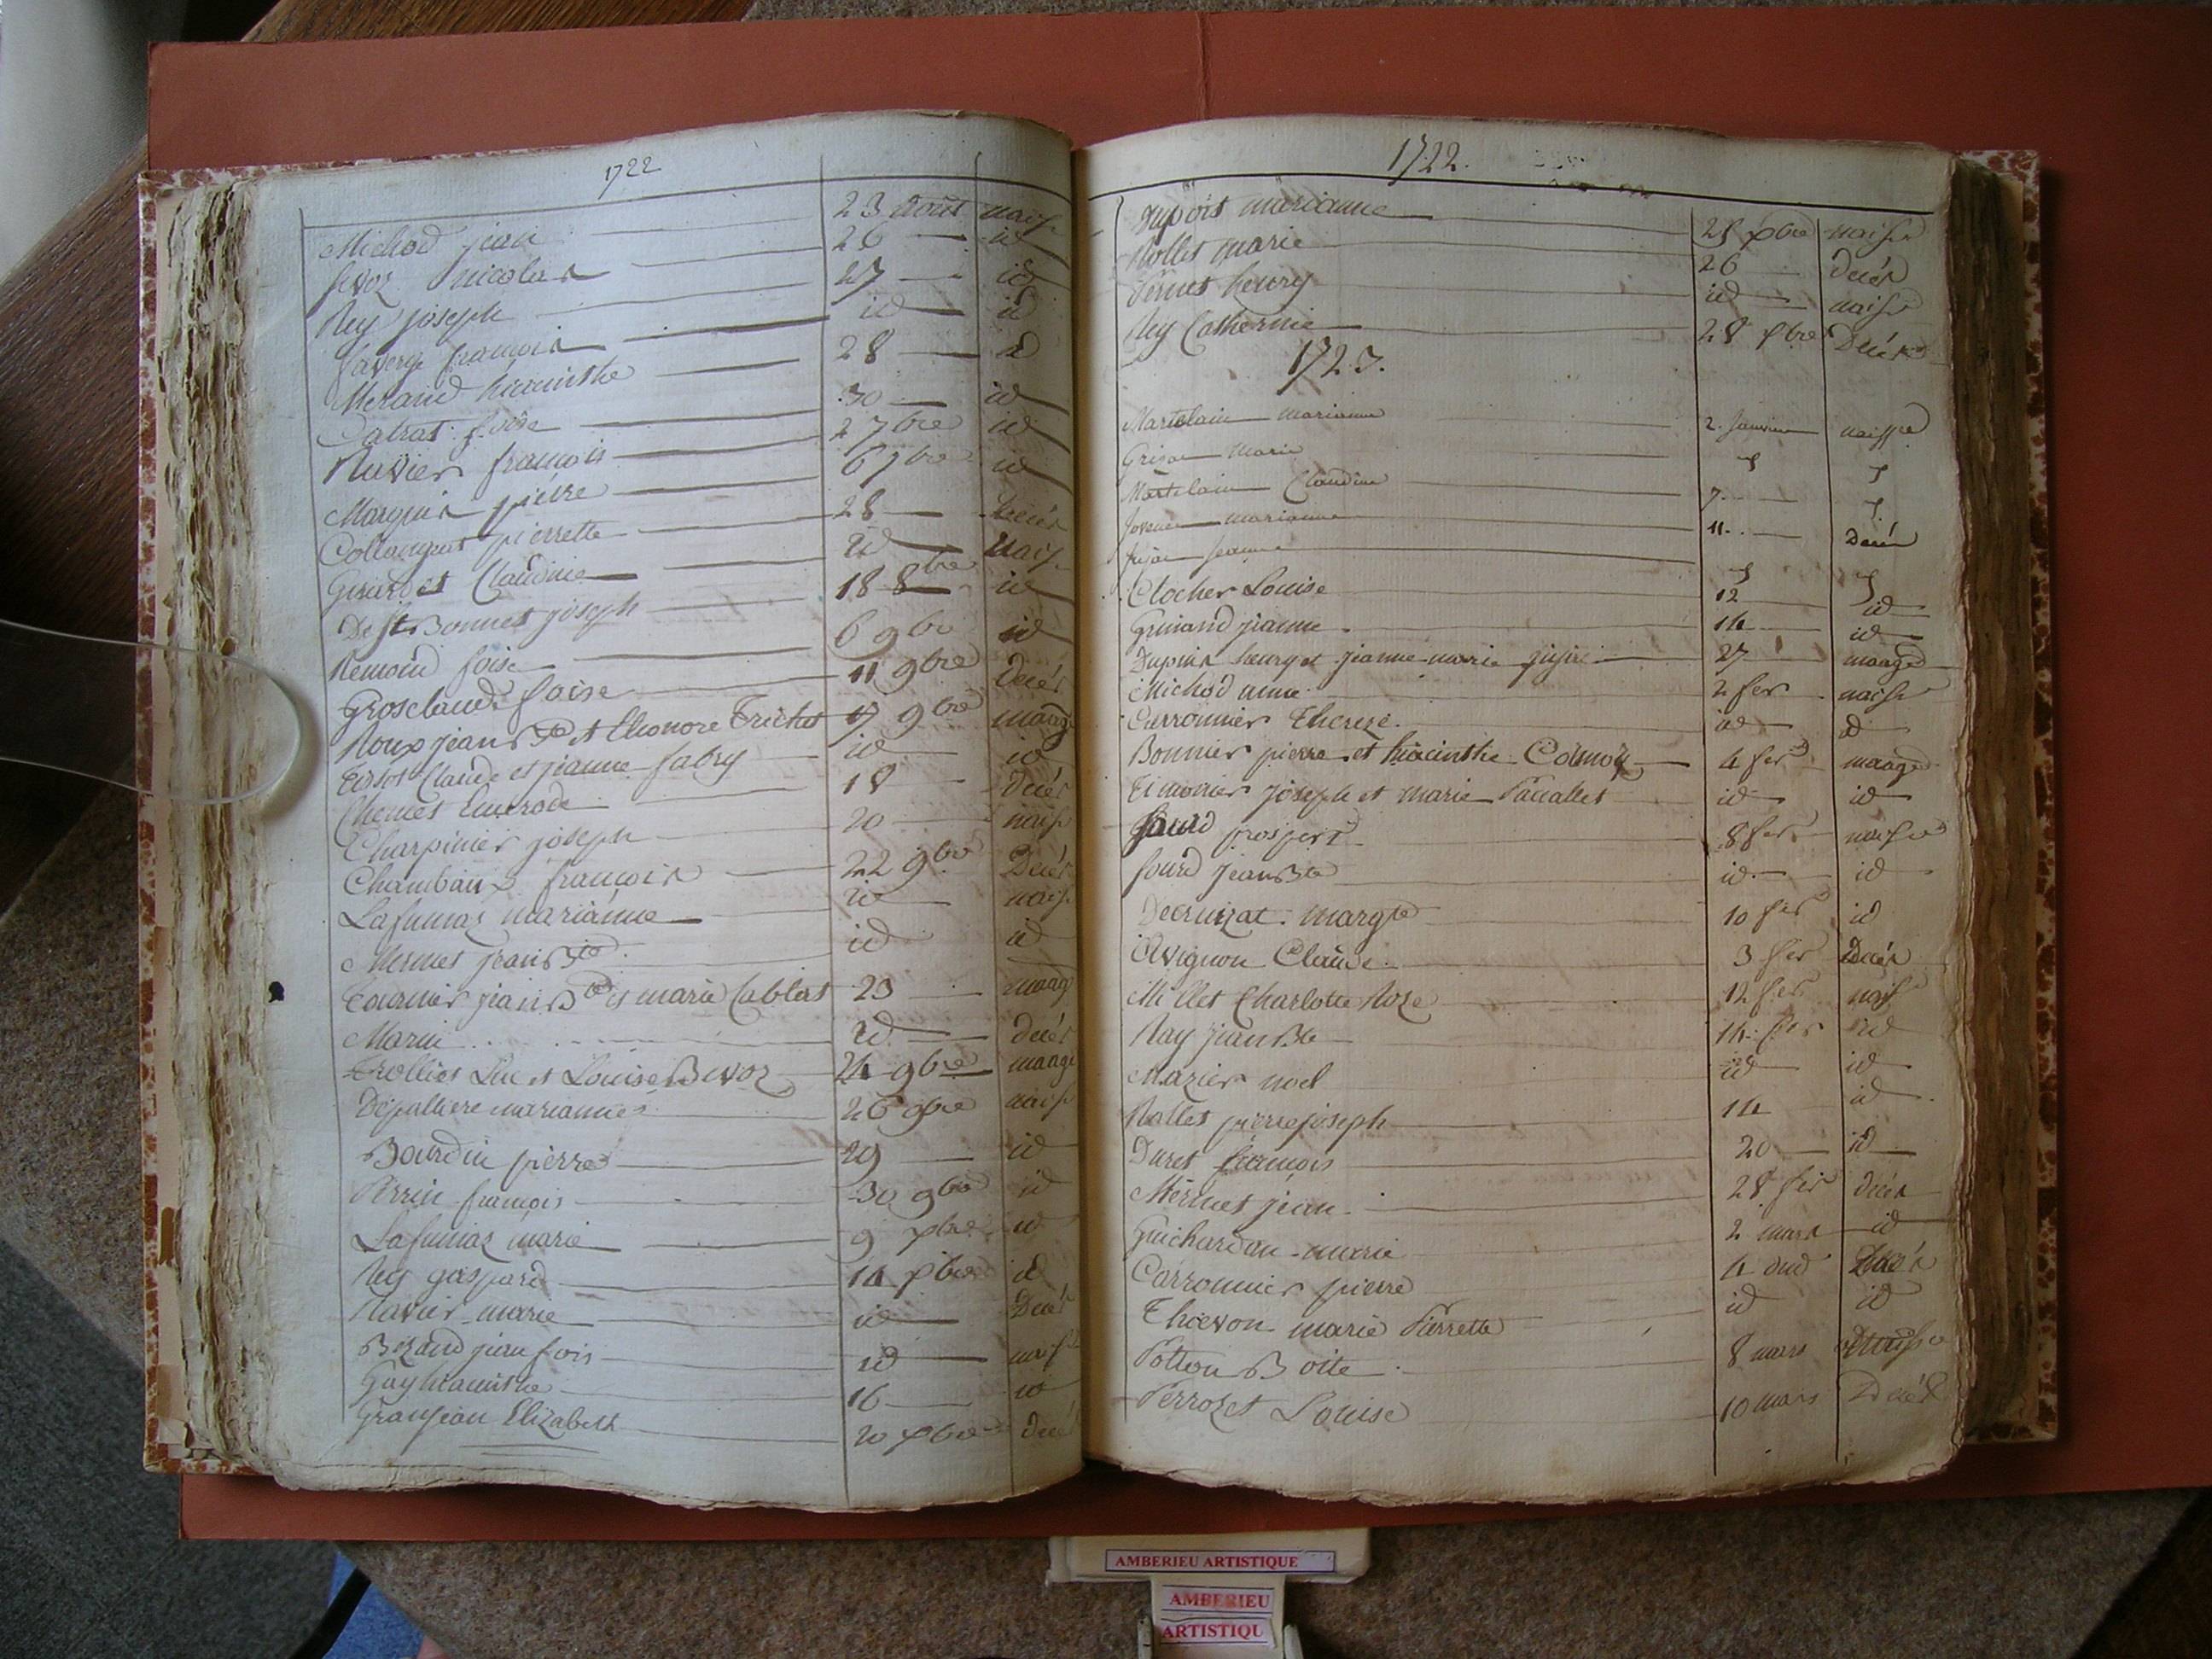 1722
Michod jean 23 août naiss
nicolas 26 id
Rey joseph 27 id
françois id id
Meraud hiacinthe 28 id
Catrat foise 30 id
Ruvier françois 2 7bre id
Marquis pierre 6 7bre id
pierrette 28 Decés
Girardet Claudine id naiss
De St Bonnet joseph 18 8bre id
Remond foise 6 9bre id
Grosclaude foise 11 9bre Decés
Roux jean Bte et Eleonore Trichet 17 9bre maage
Tissot Claude et jeanne fabry id id
18 Decés
Charpinier joseph 20 naiss
Chambaux françois 22 9bre Decés
Lafumaz marianne id naiss
Mermet jean Bte id id
Tournier jean Bte et marie 23 maage
Marie id decés
Trollict Luc et Louise Bevoz 24 9bre maage
marianne 26 9bre naiss
Bourdin pierre 29 id
Perrin françois 30 9bre id
Lafumaz marie 9 xbre id
Rey gaspard 14 xbre id
Ravier marie id Decés
jean fois id naiss
Guy hiacinthe 16 id
Granjean Elizabeth 20 xbre decés
1722.
marianne 25 xbre naiss
Rollet marie 26 Decés
Pernet henry id naiss
Rey Catherine 28 xbre Decés
1723.
Martelain marianne 2. Janvier naissce
Marie
Martelain Claudine 7.
marianne 11. Decés
jeanne
Clocher Louise 12 id
jeanne 14 id
Dupuis henry et jeanne marie 27 maage
Michod anne 2 fer naiss
Carronnier Thereze. id id
Bonnier pierre et hiacinthe 4 fer maage
Timonier joseph et marie id id
prosper 8 fer naiss
jean Bte id id
Decruzat margte 10 fer id
Avignon Claude 3 fer Decés
Millet Charlotte Roze 12 fer naiss
Ray jean Bte 14 fer id
Mazier noel id id
Rallet pierre joseph 14 id
Duret françois 20 id
Mermet jean 28 fer decés
Guichardon marie 2 mars id
Carronnier pierre 4 dud
Thievon marie Pierrette id id
Potton Boite 8 mars
Perrozet Louise 10 mars Decés
AMBERIEU ARTISTIQUE
AMBERIEU
ARTISTIQU